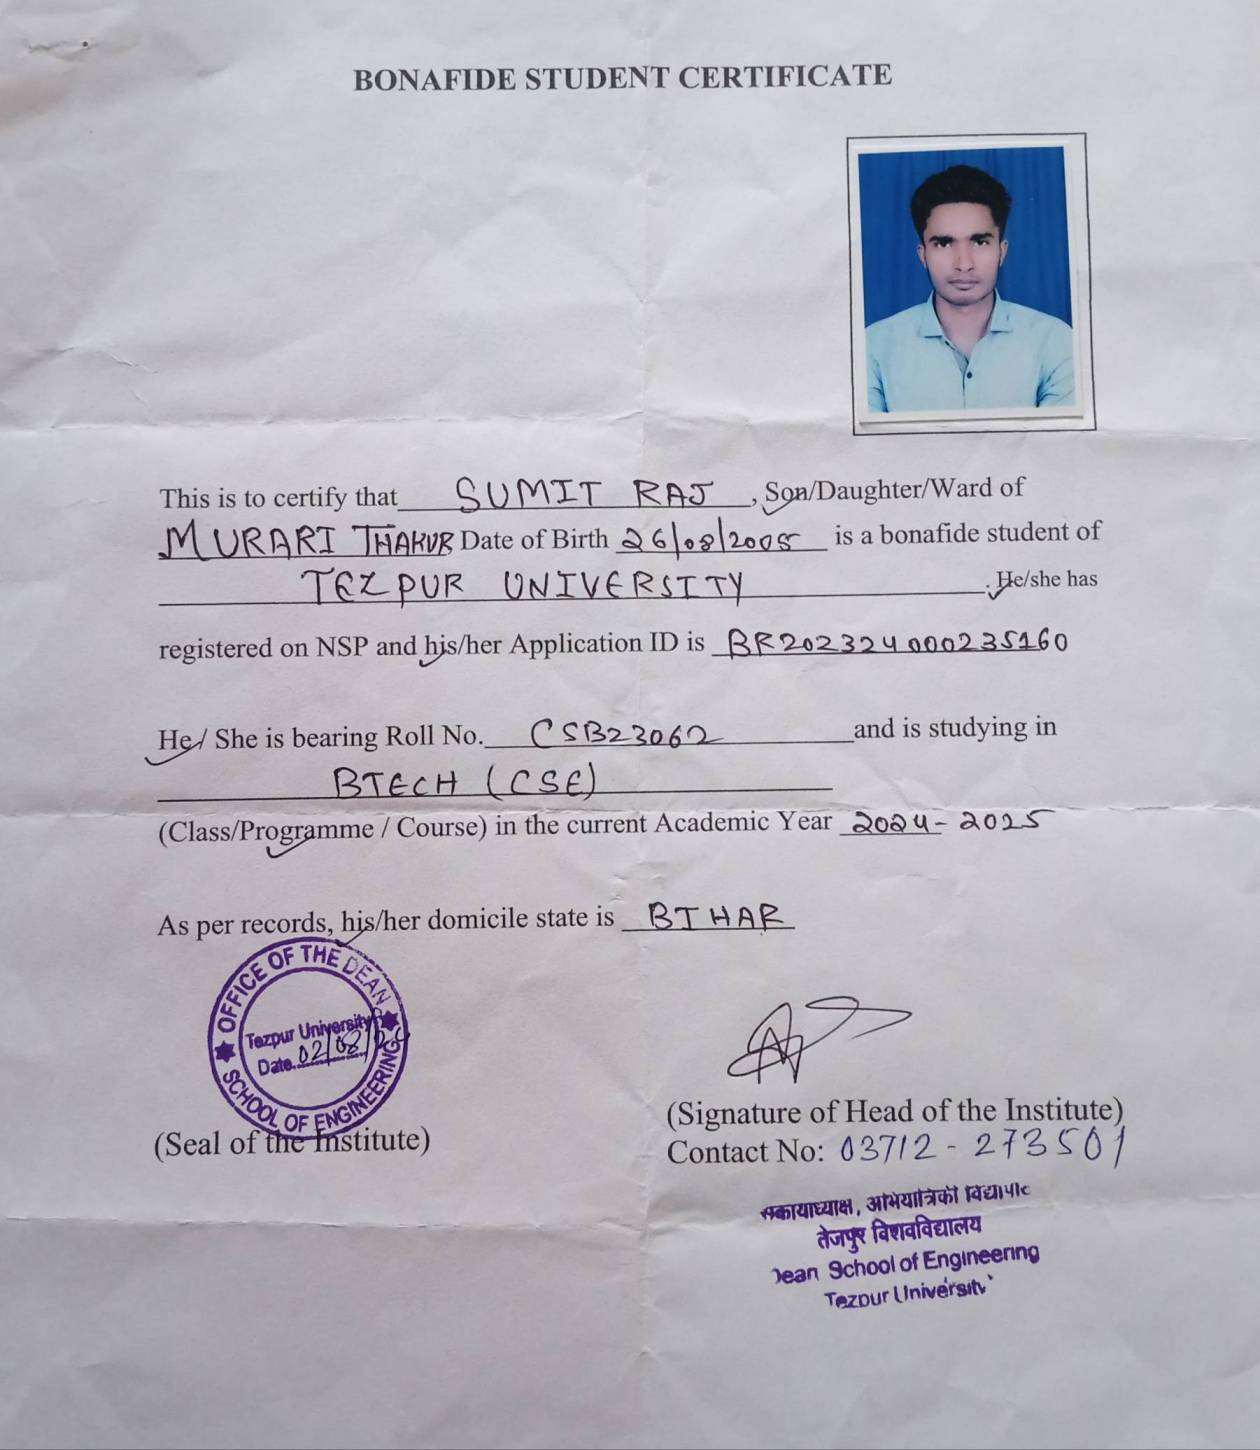 BONAFIDE STUDENT CERTIFICATE
This is to certify that SUMIT RAJ, Son/Daughter/Ward of
MURARI THAKUR Date of Birth 26/08/2005 is a bonafide student of
TEZPUR UNIVERSITY. He/she has
registered on NSP and his/her Application ID is BR202324000235160
He/ She is bearing Roll No. CSB23062 and is studying in
BTECH (CSE)
(Class/Programme / Course) in the current Academic Year 2024-2025
As per records, his/her domicile state is BIHAR
OFFICE OF THE DEAN
Tezpur University
Date. 02/08/24
SCHOOL OF ENGINEERING
(Seal of the Institute)
(Signature of Head of the Institute)
Contact No: 03712-273501
संकायाध्यक्ष, अभियांत्रिकी विद्यापीठ
तेजपुर विश्वविद्यालय
Dean School of Engineering
Tezpur University